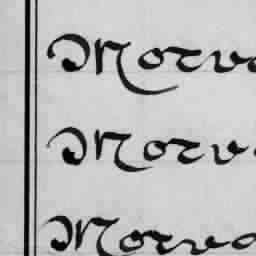 Morva
Morv
Morva